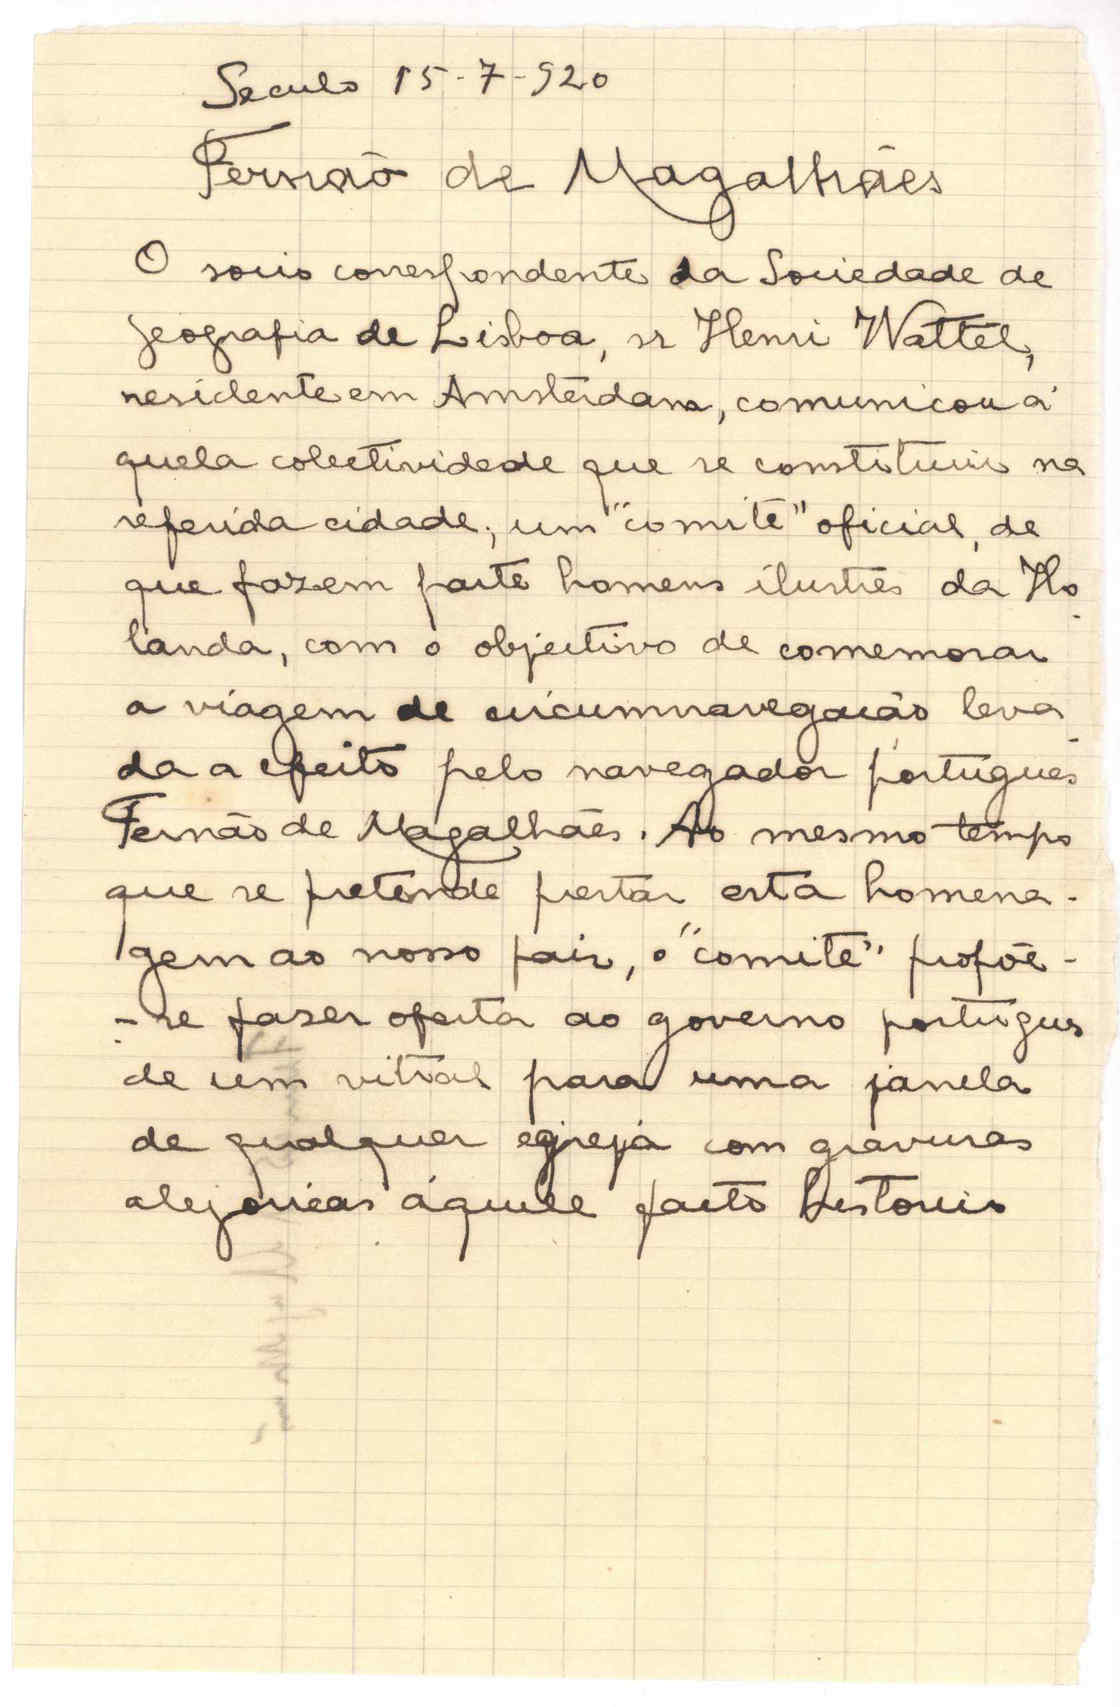 Seculo 15-7-920
Fernão de Magalhães
O socio correspondente da Sociedade de
geografia de Lisboa, sr Henri Wattel,
residente em Amsterdam, comunicou á
quela colectividade que se constituiu na
referida cidade, um "comité" oficial, de
que fazem parte homens ilustres da Ho
landa, com o objectivo de comemorar
a viagem de circumnavegação leva
da a efeito pelo navegador português
Fernão de Magalhães. Ao mesmo tempo
que se pretende prestar esta homena-
gem ao nosso pais, o "comité" propõe-
-se fazer oferta ao governo português
de um vitral para uma janela
de qualquer egreja com gravuras
alegoricas áquele facto historico